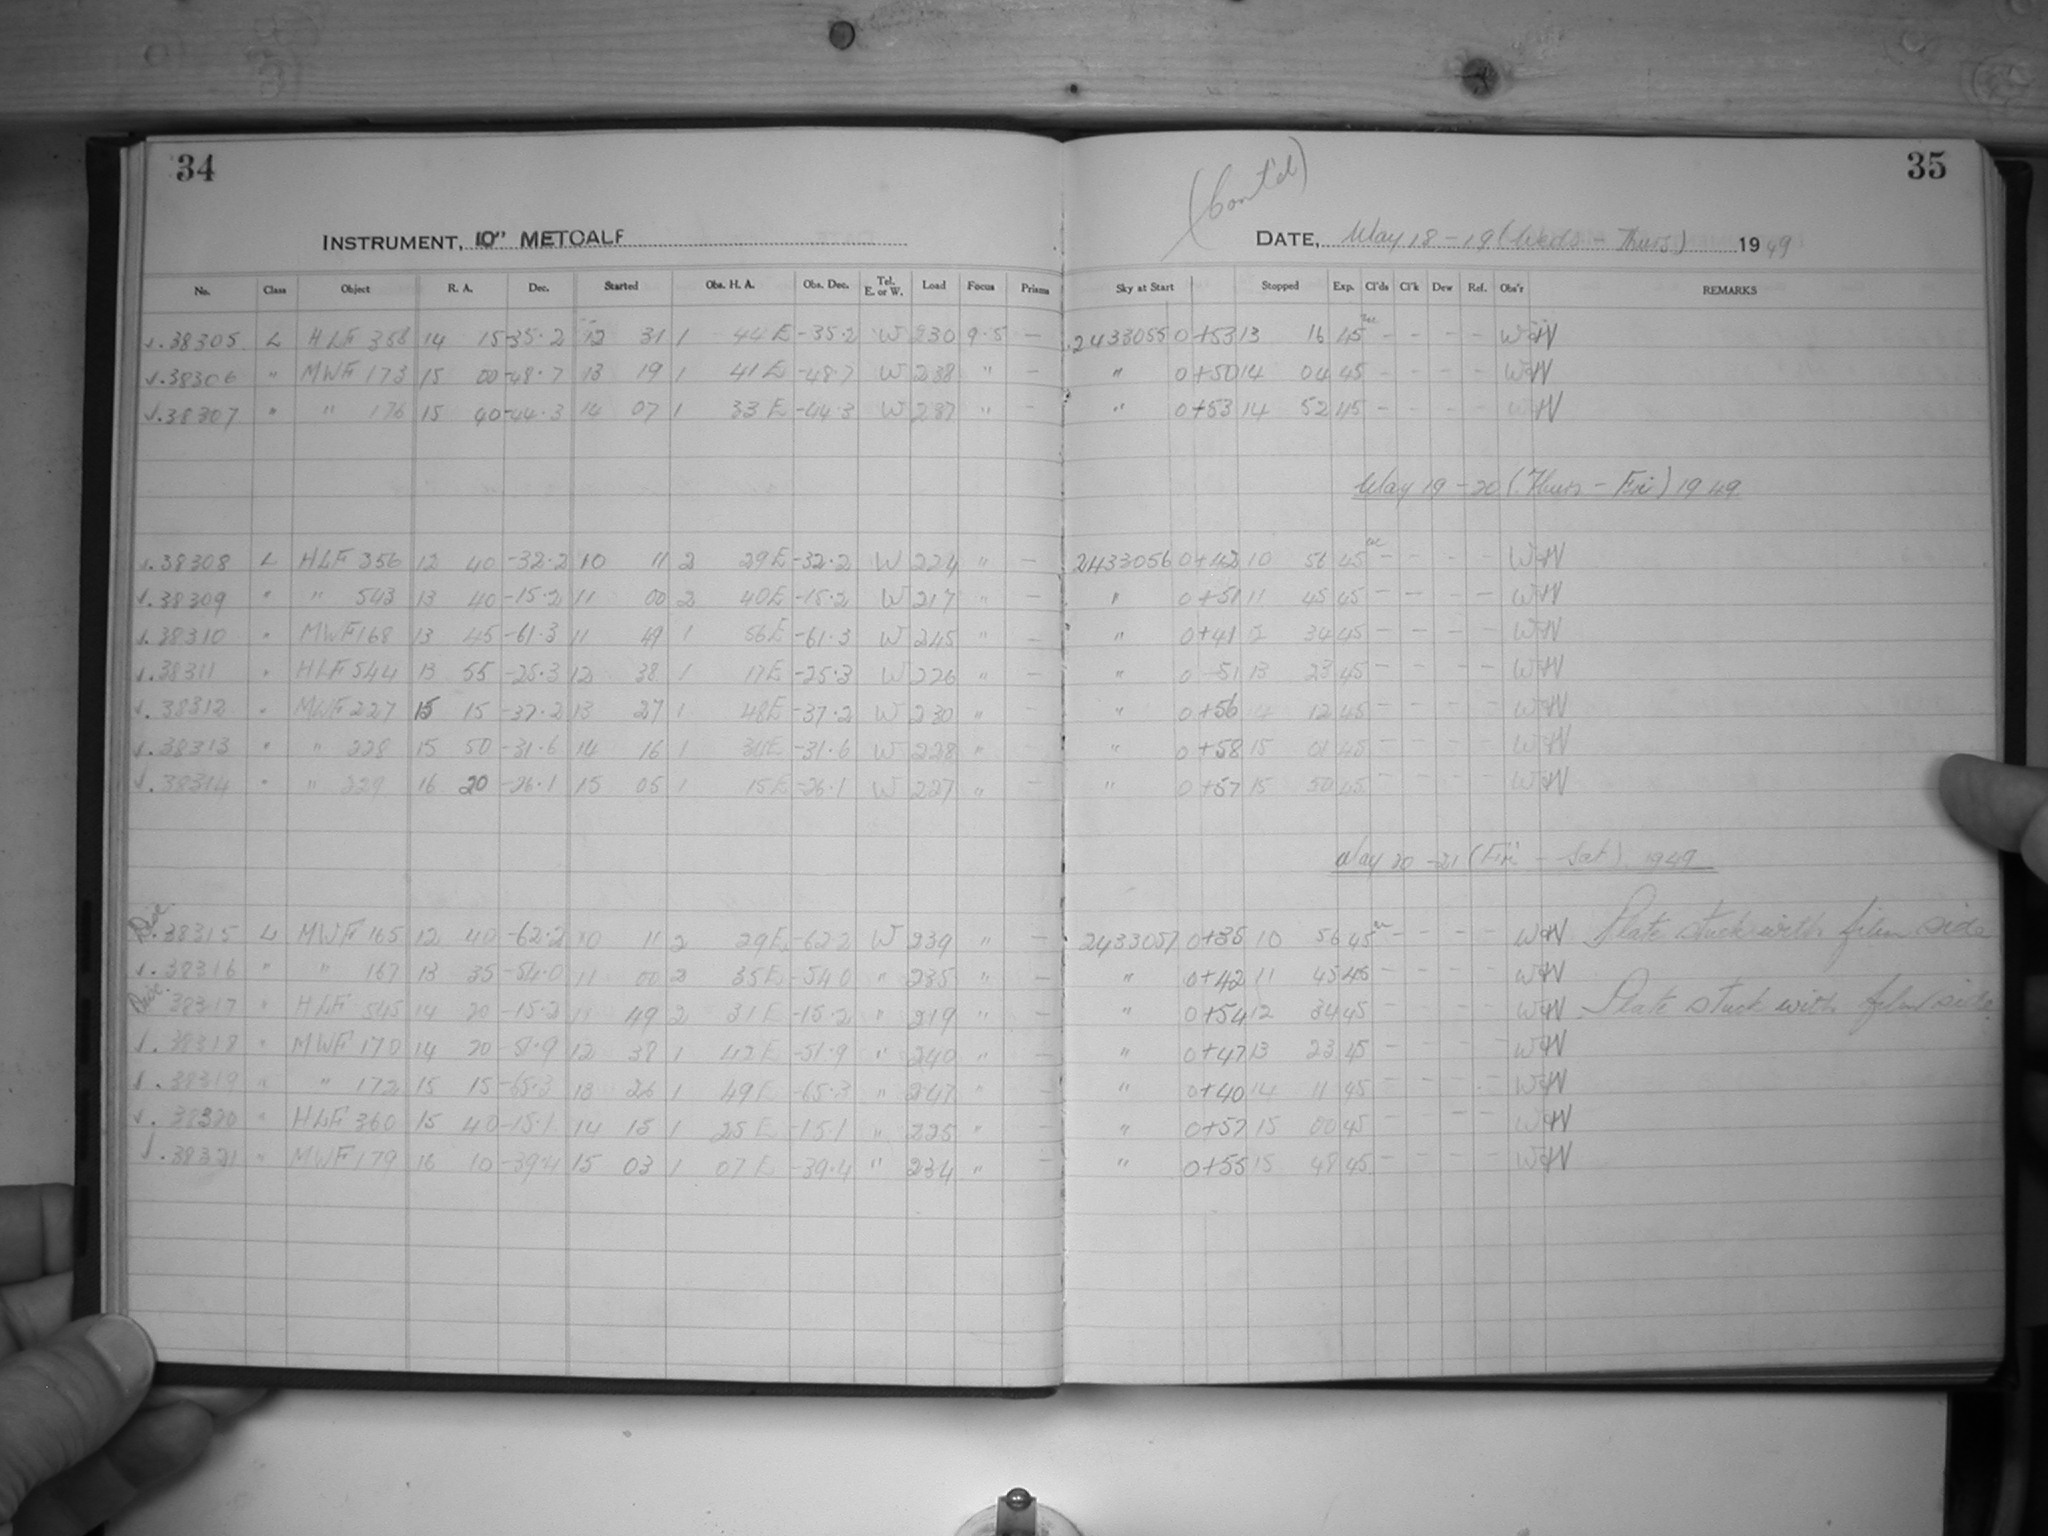 34
35
(Cont'd)
INSTRUMENT, 10" METCALF
DATE, May 18-19 (Weds - Thurs) 1949
No. Class Object R. A. Dec. Started Obs. H. A. Obs. Dec. Tel. E. or W. Load Focus Prisms Sky at Start Stopped Exp. Cl'ds Cl'k Dew Ref. Obs'r REMARKS
√.38305 L HLF 358 14 15 -35.2 12 31 1 44E -35.2 W 230 9.5 — 2433055 0+53 13 16 45 - - - - W&W
√.38306 " MWF 173 15 00 -48.7 13 19 1 41E -48.7 W 238 " - " 0+50 14 04 45 - - - - W&W
√.38307 " " 176 15 40 -44.3 14 07 1 33E -44.3 W 237 " - " 0+53 14 52 45 - - - - W&W
May 19-20 (Thurs - Fri) 1949
√.38308 L HLF 356 12 40 -32.2 10 11 2 29E -32.2 W 224 " - 2433056 0+42 10 56 45 - - - - W&W
√.38309 " " 543 13 40 -15.2 11 00 2 40E -15.2 W 217 " - " 0+51 11 45 45 - - - - W&W
√.38310 " MWF 168 13 45 -61.3 11 49 1 56E -61.3 W 245 " - " 0+41 12 34 45 - - - - W&W
√.38311 " HLF 544 13 55 -25.3 12 38 1 17E -25.3 W 226 " - " 0 51 13 23 45 - - - - W&W
√.38312 " MWF 227 15 15 -37.2 13 27 1 48E -37.2 W 230 " - " 0+56 14 12 45 - - - - W&W
√.38313 " " 228 15 50 -31.6 14 16 1 34E -31.6 W 228 " - " 0+58 15 01 45 - - - - W&W
√.38314 " " 229 16 20 -26.1 15 05 1 15E -26.1 W 227 " - " 0+57 15 50 45 - - - - W&W
May 20-21 (Fri - Sat) 1949
38315 L MWF 165 12 40 -62.2 10 11 2 29E -62.2 W 239 " - 2433057 0+35 10 56 45 - - - - W&W Plate stuck with film side
√.38316 " " 167 13 35 -54.0 11 00 2 35E -54.0 " 235 " - " 0+42 11 45 45 - - - - W&W
38317 " HLF 545 14 20 -15.2 11 49 2 31E -15.2 " 219 " - " 0+54 12 34 45 - - - - W&W Plate stuck with film side
√.38318 " MWF 170 14 20 -51.9 12 38 1 42E -51.9 " 240 " - " 0+47 13 23 45 - - - - W&W
√.38319 " " 172 15 15 -65.3 13 26 1 49E -65.3 " 247 " - " 0+40 14 11 45 - - - - W&W
√.38320 " HLF 360 15 40 -15.1 14 15 1 25E -15.1 " 225 " - " 0+57 15 00 45 - - - - W&W
√.38321 " MWF 179 16 10 -39.4 15 03 1 07E -39.4 " 234 " - " 0+55 15 48 45 - - - - W&W